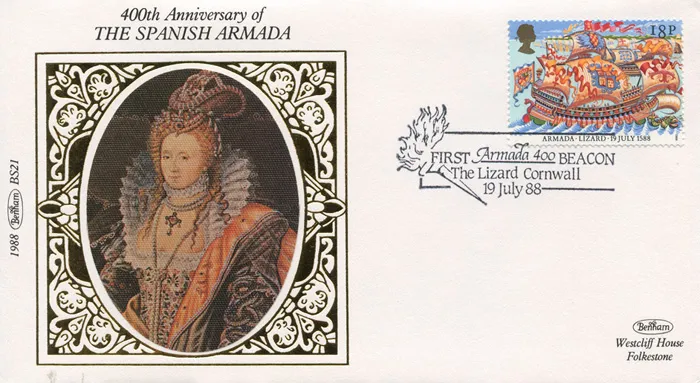 400th Anniversary of
THE SPANISH ARMADA
18P
ARMADA-LIZARD-19 JULY 1588
FIRST Armada 400 BEACON
The Lizard Cornwall
19 July 88
1988 Benham BS21
Benham
Westcliff House
Folkestone